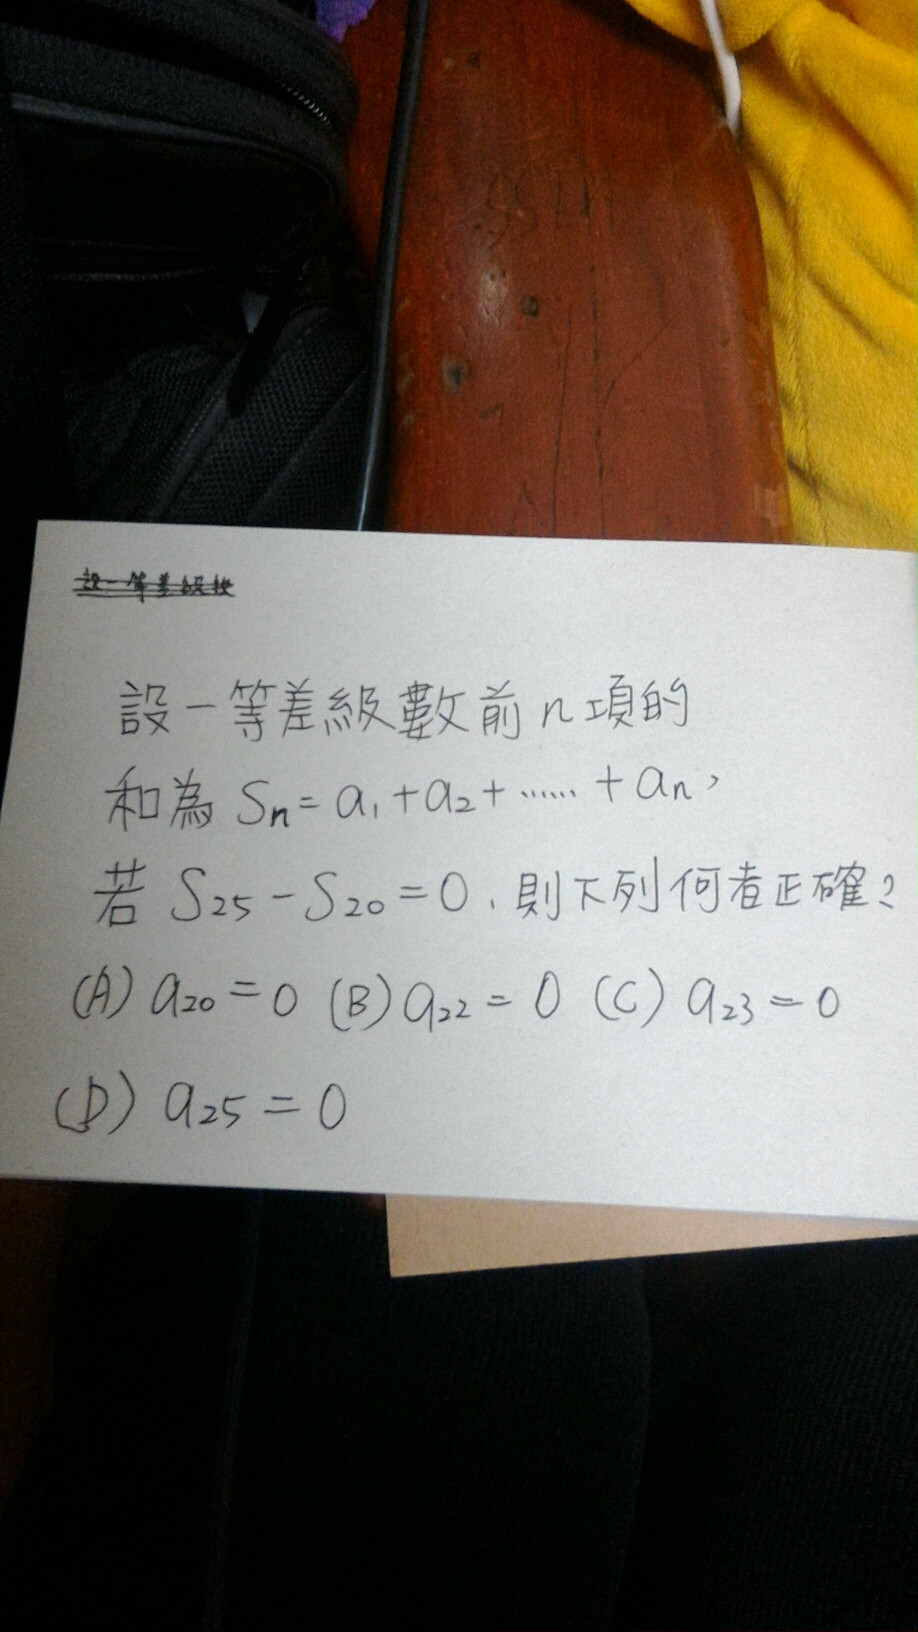 設一等差級數
設一等差級數前n項的
和為 Sn=a₁+a₂+……+an，
若 S₂₅-S₂₀=0，則下列何者正確？
(A) a₂₀=0 (B) a₂₂=0 (C) a₂₃=0
(D) a₂₅=0